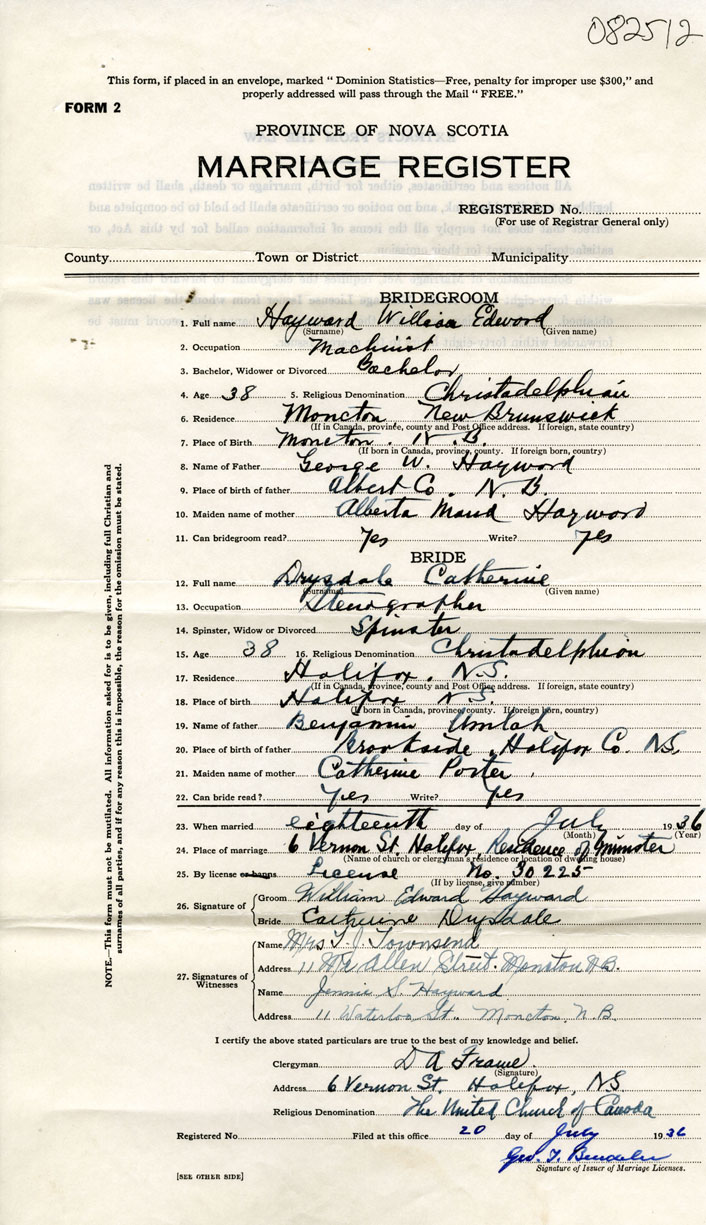 082512
This form, if placed in an envelope, marked " Dominion Statistics—Free, penalty for improper use $300," and
properly addressed will pass through the Mail " FREE."
FORM 2
PROVINCE OF NOVA SCOTIA
MARRIAGE REGISTER
REGISTERED No.
(For use of Registrar General only)
County Town or District Municipality
BRIDEGROOM
1. Full name Hayward William Edward
(Surname) (Given name)
2. Occupation Machinist
3. Bachelor, Widower or Divorced Bachelor
4. Age 38 5. Religious Denomination Christadelphian
6. Residence Moncton, New Brunswick
(If in Canada, province, county and Post Office address. If foreign, state country)
7. Place of Birth Moncton. N.B.
(If born in Canada, province, county. If foreign born, country)
8. Name of Father George W. Hayward
9. Place of birth of father Albert Co. N.B.
10. Maiden name of mother Alberta Maud Hayward
11. Can bridegroom read? Yes Write? Yes
BRIDE
12. Full name Drysdale Catherine
(Surname) (Given name)
13. Occupation Stenographer
14. Spinster, Widow or Divorced Spinster
15. Age 38 16. Religious Denomination Christadelphian
17. Residence Halifax, N.S.
(If in Canada, province, county and Post Office address. If foreign, state country)
18. Place of birth Halifax N.S.
(If born in Canada, province, county. If foreign born, country)
19. Name of father Benjamin Umlah
20. Place of birth of father Brookside, Halifax Co. N.S.
21. Maiden name of mother Catherine Porter
22. Can bride read? Yes Write? Yes
23. When married eighteenth day of July 1936
(Month) (Year)
24. Place of marriage 6 Vernon St. Halifax, Residence of Minister
(Name of church or clergyman's residence or location of dwelling house)
25. By license or banns License No. 30225
(If by license, give number)
26. Signature of Groom William Edward Hayward
Bride Catherine Drysdale
27. Signatures of Witnesses
Name Mrs T. J. Townsend
Address 11 McAllen Street. Moncton N.B.
Name Jennie S. Hayward
Address 11 Waterloo St. Moncton, N.B.
I certify the above stated particulars are true to the best of my knowledge and belief.
Clergyman D A Frame.
(Signature)
Address 6 Vernon St. Halifax, N.S.
Religious Denomination The United Church of Canada
Registered No. Filed at this office 20 day of July 1936
Geo. T.
Signature of Issuer of Marriage Licenses.
[SEE OTHER SIDE]
NOTE.—This form must not be mutilated. All information asked for is to be given, including full Christian and
surnames of all parties, and if for any reason this is impossible, the reason for the omission must be stated.